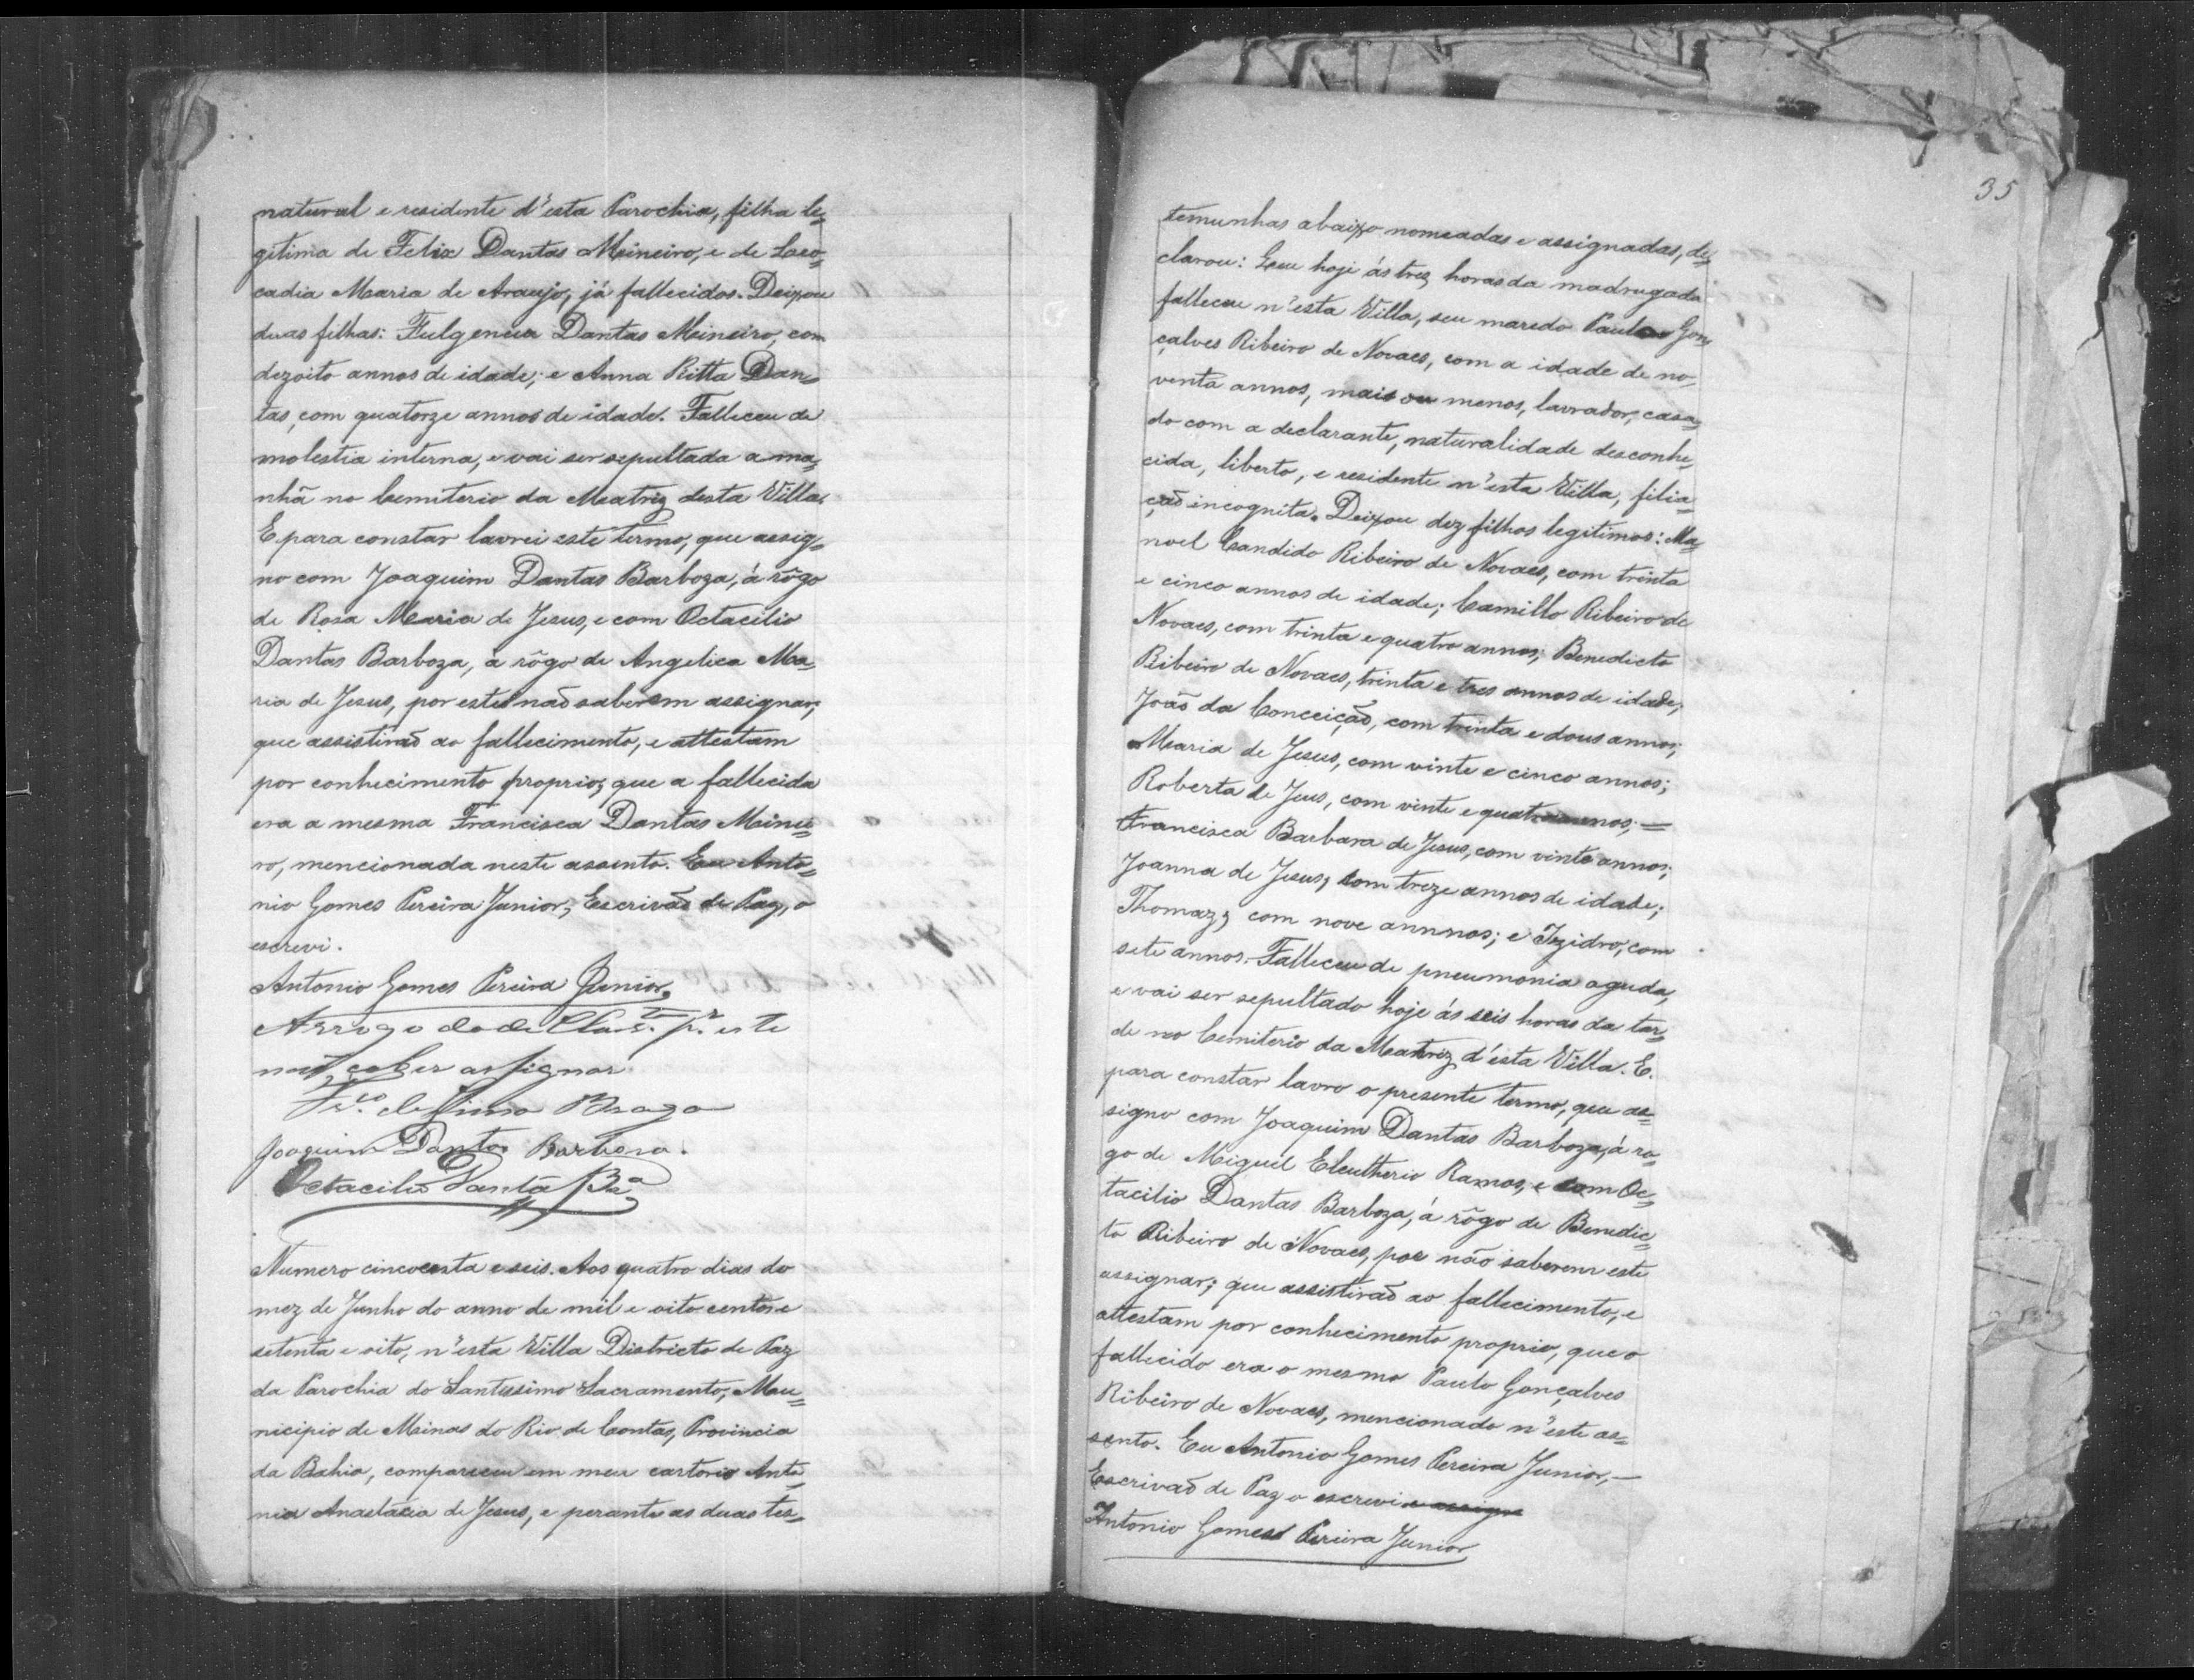 natural e residente d'esta Parochia, filha le=
gitima de Felix Dantas Mineiro, e de Leo=
cadia Maria de Araujo, já fallecidos. Deixou
duas filhas: Fulgencia Dantas Mineiro, com
dezoito annos de idade; e Anna Ritta Dan=
tas, com quatorze annos de idade. Falleceu de
molestia interna, e vai ser sepultada a ma=
nhã no Cemiterio da Matriz desta Villa.
E para constar lavrei este termo, que assig=
no com Joaquim Dantas Barboza, á rôgo
de Rosa Maria de Jesus, e com Octacilio
Dantas Barboza, á rôgo de Angelica Ma=
ria de Jesus, por estes naõ saberem assignar;
que assistiraõ ao fallecimento, e attestam
por conhecimento proprio, que a fallecida
era a mesma Francisca Dantas Minei=
ro, mencionada neste assento. Eu Anto=
nio Gomes Pereira Junior, Escrivaõ de Paz, o
escrevi.
Antonio Gomes Pereira Junior.
Arrogo do este
naõ saber assignar
de Lima Braga
Joaquim Dantas Barbosa.
Octacilio Dantas Bª
Numero cincoenta e seis. Aos quatro dias do
mez de Junho do anno de mil e oito centos e
setenta e oito, n'esta Villa Districto de Paz
da Parochia do Santissimo Sacramento, Mu=
nicipio de Minas do Rio de Contas, Provincia
da Bahia, compareceu em meu cartorio Anto=
nia Anastacia de Jesus, e perante as duas tes=
35
temunhas abaixo nomeadas e assignadas, de=
clarou: Que hoje ás trez horas da madrugada
falleceu n'esta Villa, seu marido Paulo Gon=
çalves Ribeiro de Novaes, com a idade de no=
venta annos, mais ou menos, lavrador, casa=
do com a declarante, naturalidade desconhe=
cida, liberto, e residente n'esta Villa, filia=
çaõ incognita. Deixou dez filhos legitimos: Ma=
noel Candido Ribeiro de Novaes, com trinta
e cinco annos de idade; Camillo Ribeiro de
Novaes, com trinta e quatro annos; Benedicto
Ribeiro de Novaes, trinta e tres annos de idade;
Joaõ da Conceiçaõ, com trinta e dous annos;
Maria de Jesus, com vinte e cinco annos;
Roberta de Jesus, com vinte e quatro annos; =
Francisca Barbara de Jesus, com vinte annos;
Joanna de Jesus, com treze annos de idade;
Thomaz, com nove annnos; e Izidro, com
sete annos. Falleceu de pneumonia aguda,
e vai ser sepultado hoje ás seis horas da tar=
de no Cemiterio da Matriz d'esta Villa. E
para constar lavro o presente termo, que as=
signo com Joaquim Dantas Barboza, á ro=
go de Miguel Eleutherio Ramos, e com Oc=
tacilio Dantas Barboza, á rôgo de Benedic=
to Ribeiro de Novaes, por não saberem este
assignar; que assistiraõ ao fallecimento, e
attestam por conhecimento proprio, que o
fallecido era o mesmo Paulo Gonçalves
Ribeiro de Novaes, mencionado n'este as=
sento. Eu Antonio Gomes Pereira Junior,—
Escrivaõ de Paz o escrevi e assigno
Antonio Gomes Pereira Junior